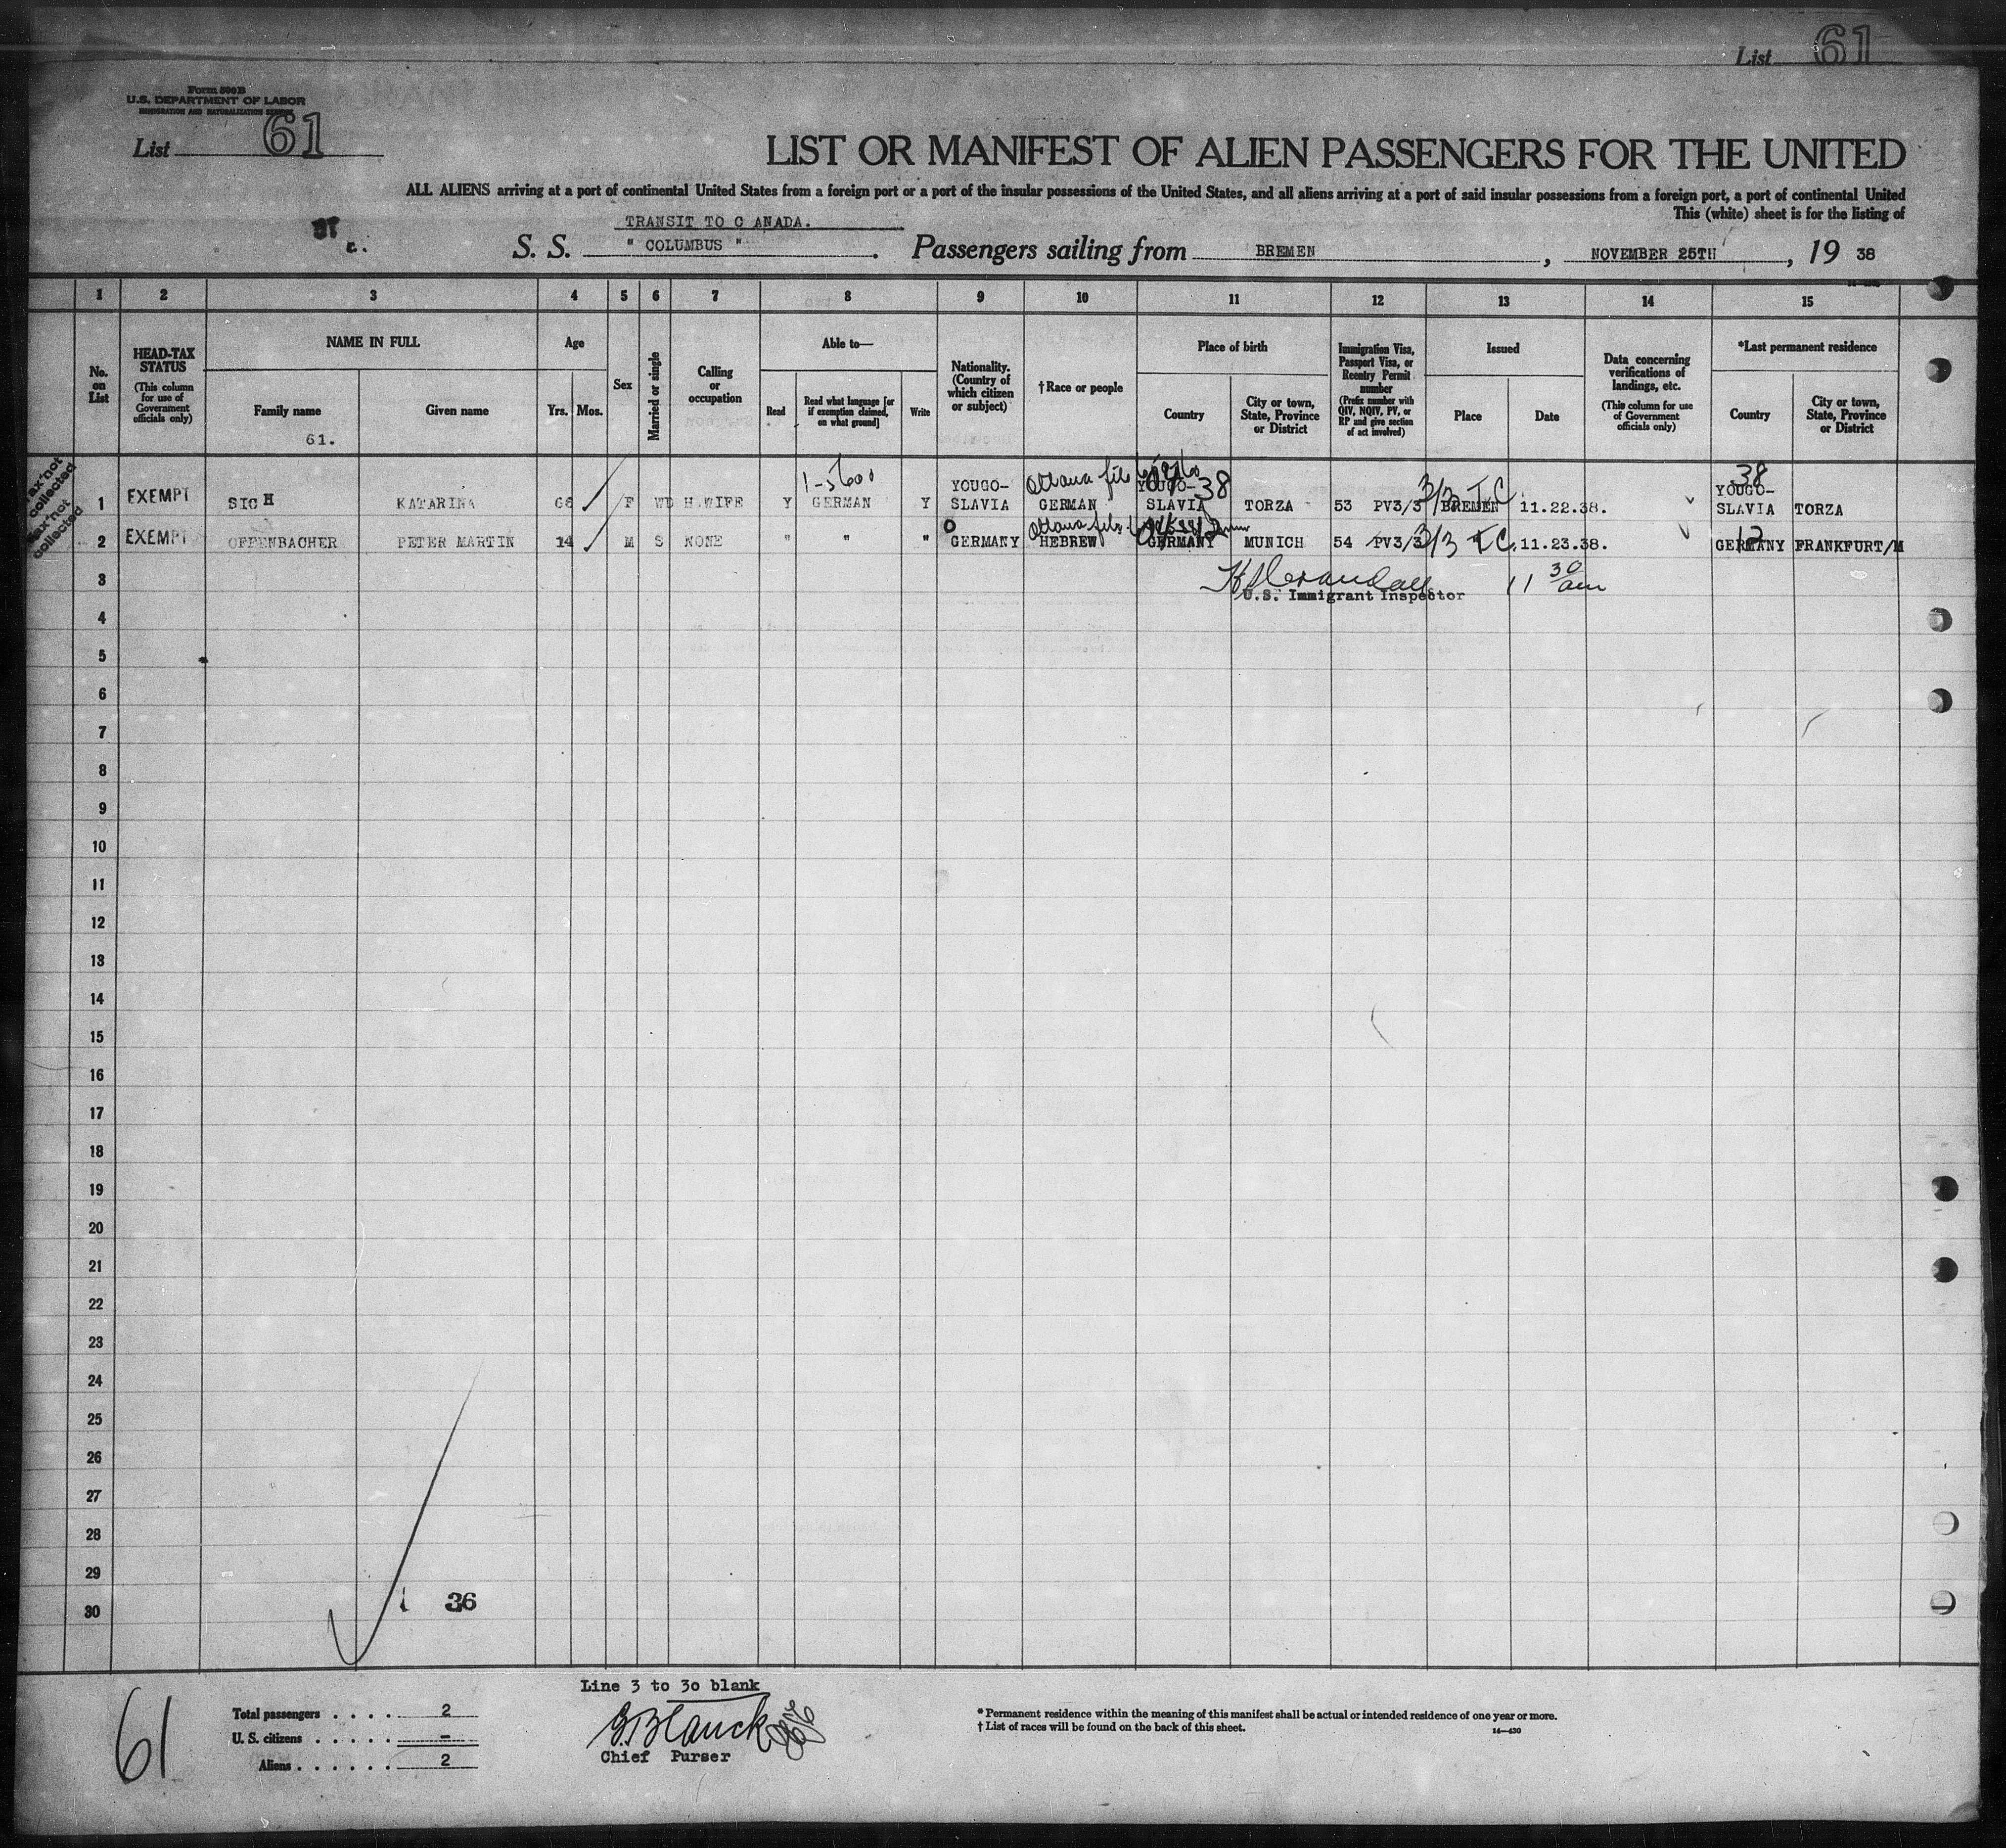 List 61
Form 500B
U.S. DEPARTMENT OF LABOR
IMMIGRATION AND NATURALIZATION SERVICE
List 61
LIST OR MANIFEST OF ALIEN PASSENGERS FOR THE UNITED
ALL ALIENS arriving at a port of continental United States from a foreign port or a port of the insular possessions of the United States, and all aliens arriving at a port of said insular possessions from a foreign port, a port of continental United
This (white) sheet is for the listing of
TRANSIT TO C ANADA.
S. S. " COLUMBUS " . Passengers sailing from BREMEN , NOVEMBER 25TH , 19 38
1 2 3 4 5 6 7 8 9 10 11 12 13 14 15
No. on List
HEAD-TAX STATUS
(This column for use of Government officials only)
NAME IN FULL
Family name
61.
Given name
Age
Yrs. Mos.
Sex
Married or single
Calling or occupation
Able to—
Read
Read what language [or if exemption claimed, on what ground]
Write
Nationality. (Country of which citizen or subject)
†Race or people
Place of birth
Country
City or town, State, Province or District
Immigration Visa, Passport Visa, or Reentry Permit number
(Prefix number with QIV, NQIV, PV, or RP and give section of act involved)
Issued
Place
Date
Data concerning verifications of landings, etc.
(This column for use of Government officials only)
*Last permanent residence
Country
City or town, State, Province or District
Tax not collected
Tax not collected
1-5600
Ottawa file
38
3/3 T.C.
38
1 EXEMPT SICH KATARINA 66 F WD H.WIFE Y GERMAN Y YOUGO-SLAVIA GERMAN YOUGO-SLAVIA TORZA 53 PV3/3 BREMEN 11.22.38. YOUGO-SLAVIA TORZA
Ottawa file
12
2 EXEMPT OFFENBACHER PETER MARTIN 14 M S NONE " " " GERMANY HEBREW GERMANY MUNICH 54 PV3/3 3/3 T.C. 11.23.38. GERMANY FRANKFURT/M
12
U.S. Immigrant Inspector
11 30 am
3
4
5
6
7
8
9
10
11
12
13
14
15
16
17
18
19
20
21
22
23
24
25
26
27
28
29
30
36
61
Line 3 to 30 blank
Total passengers . . . . 2
U. S. citizens . . . . . –
Aliens . . . . . . 2
Chief Purser
* Permanent residence within the meaning of this manifest shall be actual or intended residence of one year or more.
† List of races will be found on the back of this sheet.
14—430